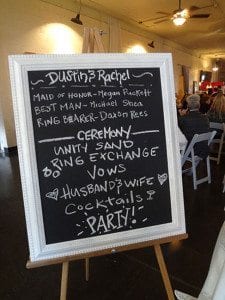 Dustin & Rachel
MAID OF HONOR - Megan Puckett
BEST MAN - Michael Shea
RING BEARER - Daxon Rees
CEREMONY
UNITY SAND
RING EXCHANGE
VOWS
HUSBAND & WIFE
Cocktails
PARTY!